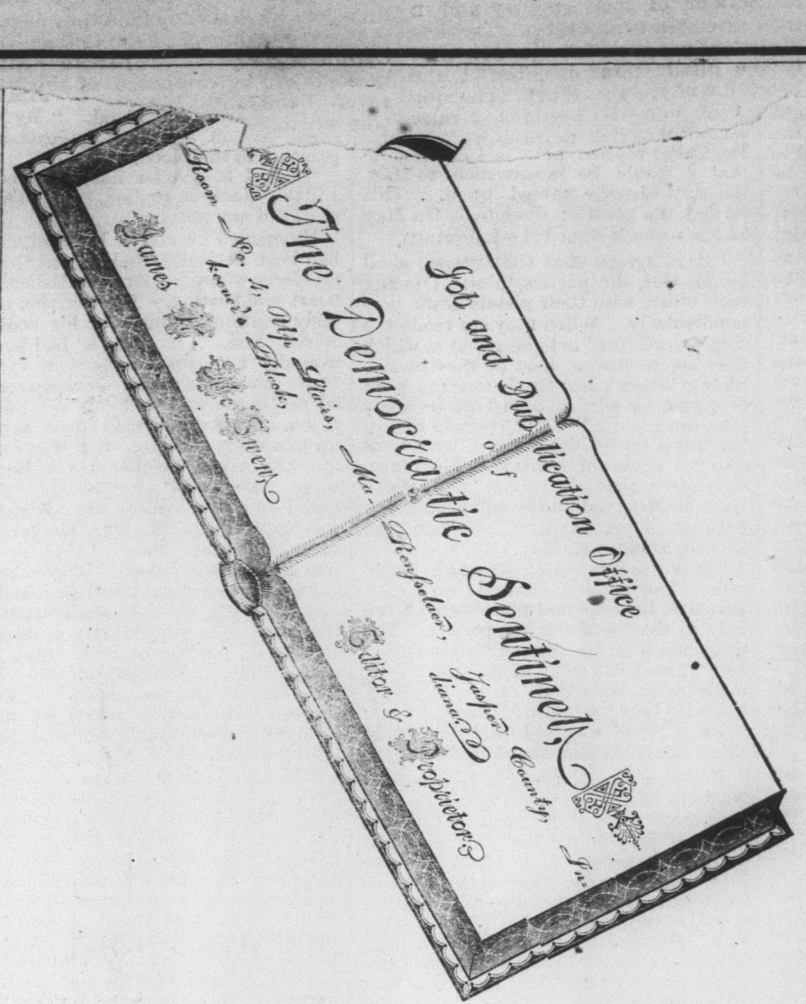 Job and Publication Office
of
The Democratic Sentinel,
Room No. 4, Up Stairs, Ma-
keever's Block, Rensselaer, Jasper County, In-
diana
James W. McEwen
Editor & Proprietor